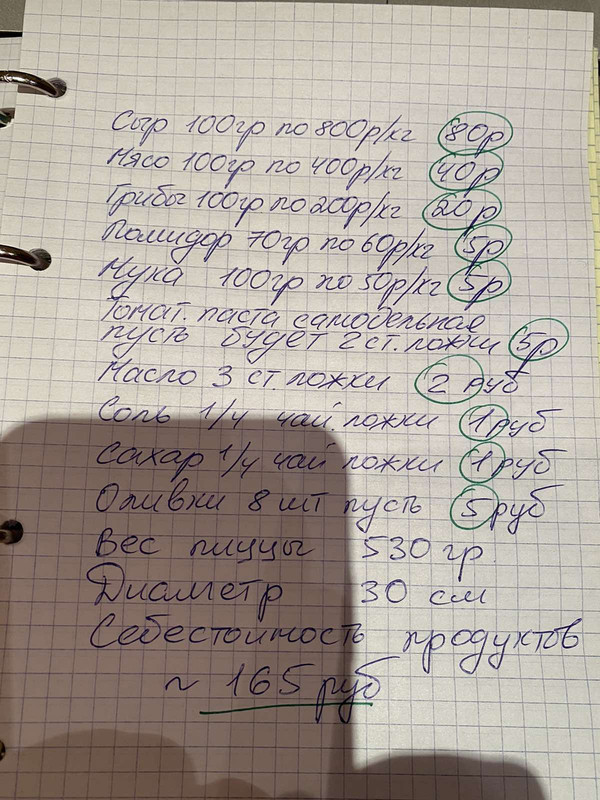 Сыр 100гр по 800р/кг 80р
Мясо 100гр по 400р/кг 40р
Грибы 100гр по 200р/кг 20р
Помидор 70гр по 60р/кг 5р
Мука 100гр по 50р/кг 5р
Томат. паста самодельная
пусть будет 2 ст. ложки 5р
Масло 3 ст. ложки 2 руб
Соль 1/4 чай. ложки 1 руб
Сахар 1/4 чай ложки 1 руб
Оливки 8 шт пусть 5 руб
Вес пиццы 530 гр.
Диаметр 30 см
Себестоимость продуктов
~ 165 руб